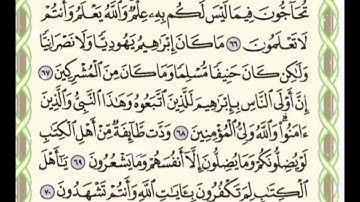 تُحَآجُّونَ فِيمَا لَيْسَ لَكُم بِهِۦ عِلْمٌ وَٱللَّهُ يَعْلَمُ وَأَنتُمْ
لَا تَعْلَمُونَ ٦٦ مَا كَانَ إِبْرَٰهِيمُ يَهُودِيًّا وَلَا نَصْرَانِيًّا
وَلَٰكِن كَانَ حَنِيفًا مُّسْلِمًا وَمَا كَانَ مِنَ ٱلْمُشْرِكِينَ ٦٧
إِنَّ أَوْلَى ٱلنَّاسِ بِإِبْرَٰهِيمَ لَلَّذِينَ ٱتَّبَعُوهُ وَهَٰذَا ٱلنَّبِىُّ وَٱلَّذِينَ
ءَامَنُوا۟ وَٱللَّهُ وَلِىُّ ٱلْمُؤْمِنِينَ ٦٨ وَدَّت طَّآئِفَةٌ مِّنْ أَهْلِ ٱلْكِتَٰبِ
لَوْ يُضِلُّونَكُمْ وَمَا يُضِلُّونَ إِلَّآ أَنفُسَهُمْ وَمَا يَشْعُرُونَ ٦٩ يَٰٓأَهْلَ
ٱلْكِتَٰبِ لِمَ تَكْفُرُونَ بِـَٔايَٰتِ ٱللَّهِ وَأَنتُمْ تَشْهَدُونَ ٧٠